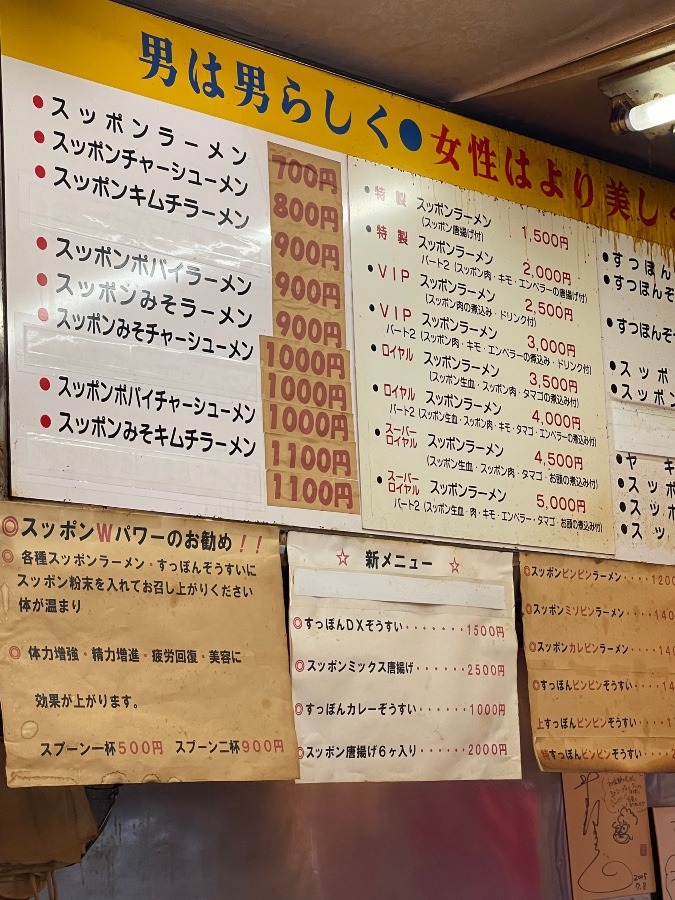 男は男らしく●女性はより美しく
●スッポンラーメン 700円
●スッポンチャーシューメン 800円
●スッポンキムチラーメン 900円
900円
●スッポンポパイラーメン 900円
●スッポンみそラーメン 1000円
●スッポンみそチャーシューメン 1000円
1000円
●スッポンポパイチャーシューメン 1100円
●スッポンみそキムチラーメン 1100円
●特製 スッポンラーメン 1,500円
(スッポン唐揚げ付)
●特製 スッポンラーメン 2,000円
パート2 (スッポン肉・キモ・エンペラーの唐揚げ付)
●VIP スッポンラーメン 2,500円
(スッポン肉の煮込み・ドリンク付)
●VIP スッポンラーメン 3,000円
パート2 (スッポン肉・キモ・エンペラーの煮込み・ドリンク付)
●ロイヤル スッポンラーメン 3,500円
(スッポン生血・スッポン肉・タマゴの煮込み付)
●ロイヤル スッポンラーメン 4,000円
パート2 (スッポン生血・スッポン肉・キモ・タマゴ・エンペラーの煮込み付)
●スーパーロイヤル スッポンラーメン 4,500円
(スッポン生血・スッポン肉・タマゴ・お頭の煮込み付)
●スーパーロイヤル スッポンラーメン 5,000円
パート2 (スッポン生血・肉・キモ・エンペラー・タマゴ・お頭の煮込み付)
●すっぽん
●すっぽんぞ
●すっぽんぞう
●スッポ
●スッポン
●ヤキ
●スッポ
●スッポ
●スッ
◎スッポンWパワーのお勧め!!
◎各種スッポンラーメン・すっぽんぞうすいに
スッポン粉末を入れてお召し上がりください
体が温まり
◎体力増強・精力増進・疲労回復・美容に
効果が上がります。
スプーン一杯500円 スプーン二杯900円
☆ 新メニュー ☆
◎すっぽんDXぞうすい・・・・・・・1500円
◎スッポンミックス唐揚げ・・・・・・2500円
◎すっぽんカレーぞうすい・・・・・・1000円
◎スッポン唐揚げ6ヶ入り・・・・・・2000円
◎スッポンピンピンラーメン・・・・1200
◎スッポンミソピンラーメン・・・・140
◎スッポンカレピンラーメン・・・・140
◎すっぽんピンピンぞうすい・・・・14
上すっぽんピンピンぞうすい・・・・1
特すっぽんピンピンぞうすい・・・・2
2005
7.8